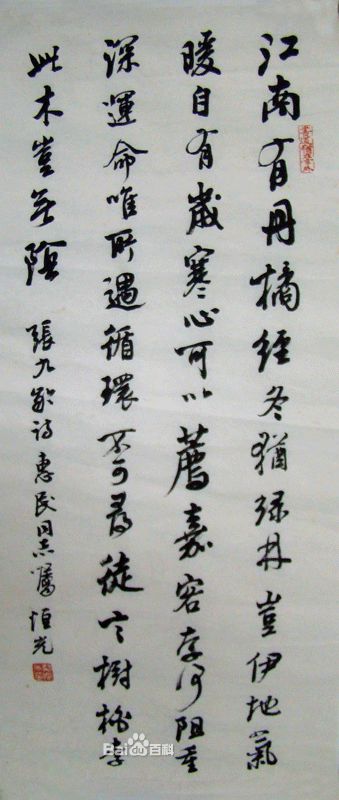 江南有丹橘經冬猶綠林豈伊地氣
暖自有歲寒心可以薦嘉客奈何阻重
深運命唯所遇循環不可尋徒言樹桃李
此木豈無陰 張九齡詩 惠民同志囑 恒光
Bai du 百科